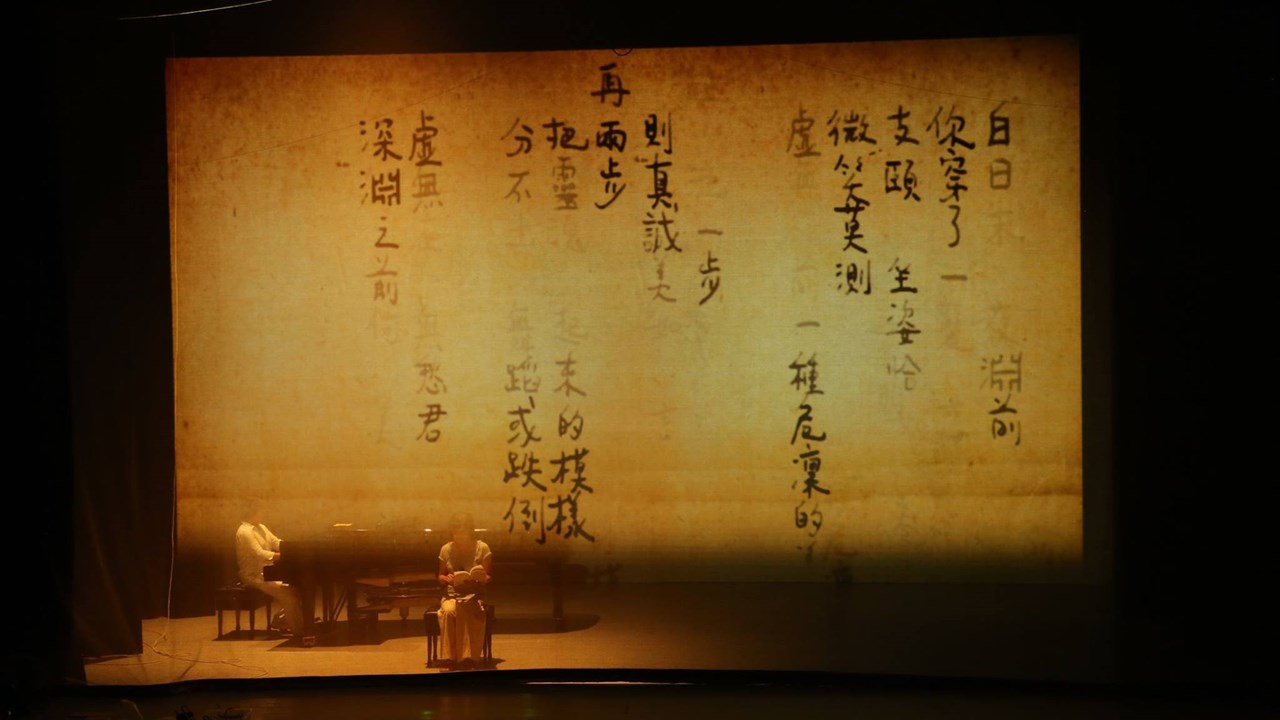 白日 淵前
你穿了一
支頤 坐姿
微笑莫測
虛 一種危凜的
一步
則真誠美
再兩步
把靈 起來的模樣
分不 舞蹈或跌倒
虛無 無愁君
深淵之前